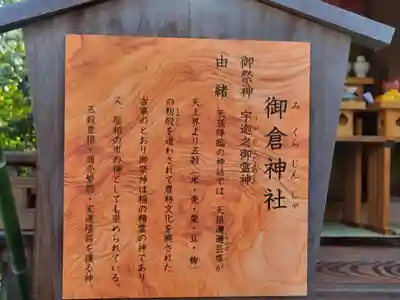 御倉神社
みくらじんじゃ
御祭神 宇迦之御霊神
由緒 天孫降臨の神話では、天孫邇邇芸尊が
天上界より五穀（米・麦・粟・豆・稗）
の籾種を遣わされて農耕文化を興された
古事のとおり御祭神は稲の精霊の神であり
又、屋船の里の神としても崇められている。
五穀豊穣・商売繁盛・家運隆昌を護る神